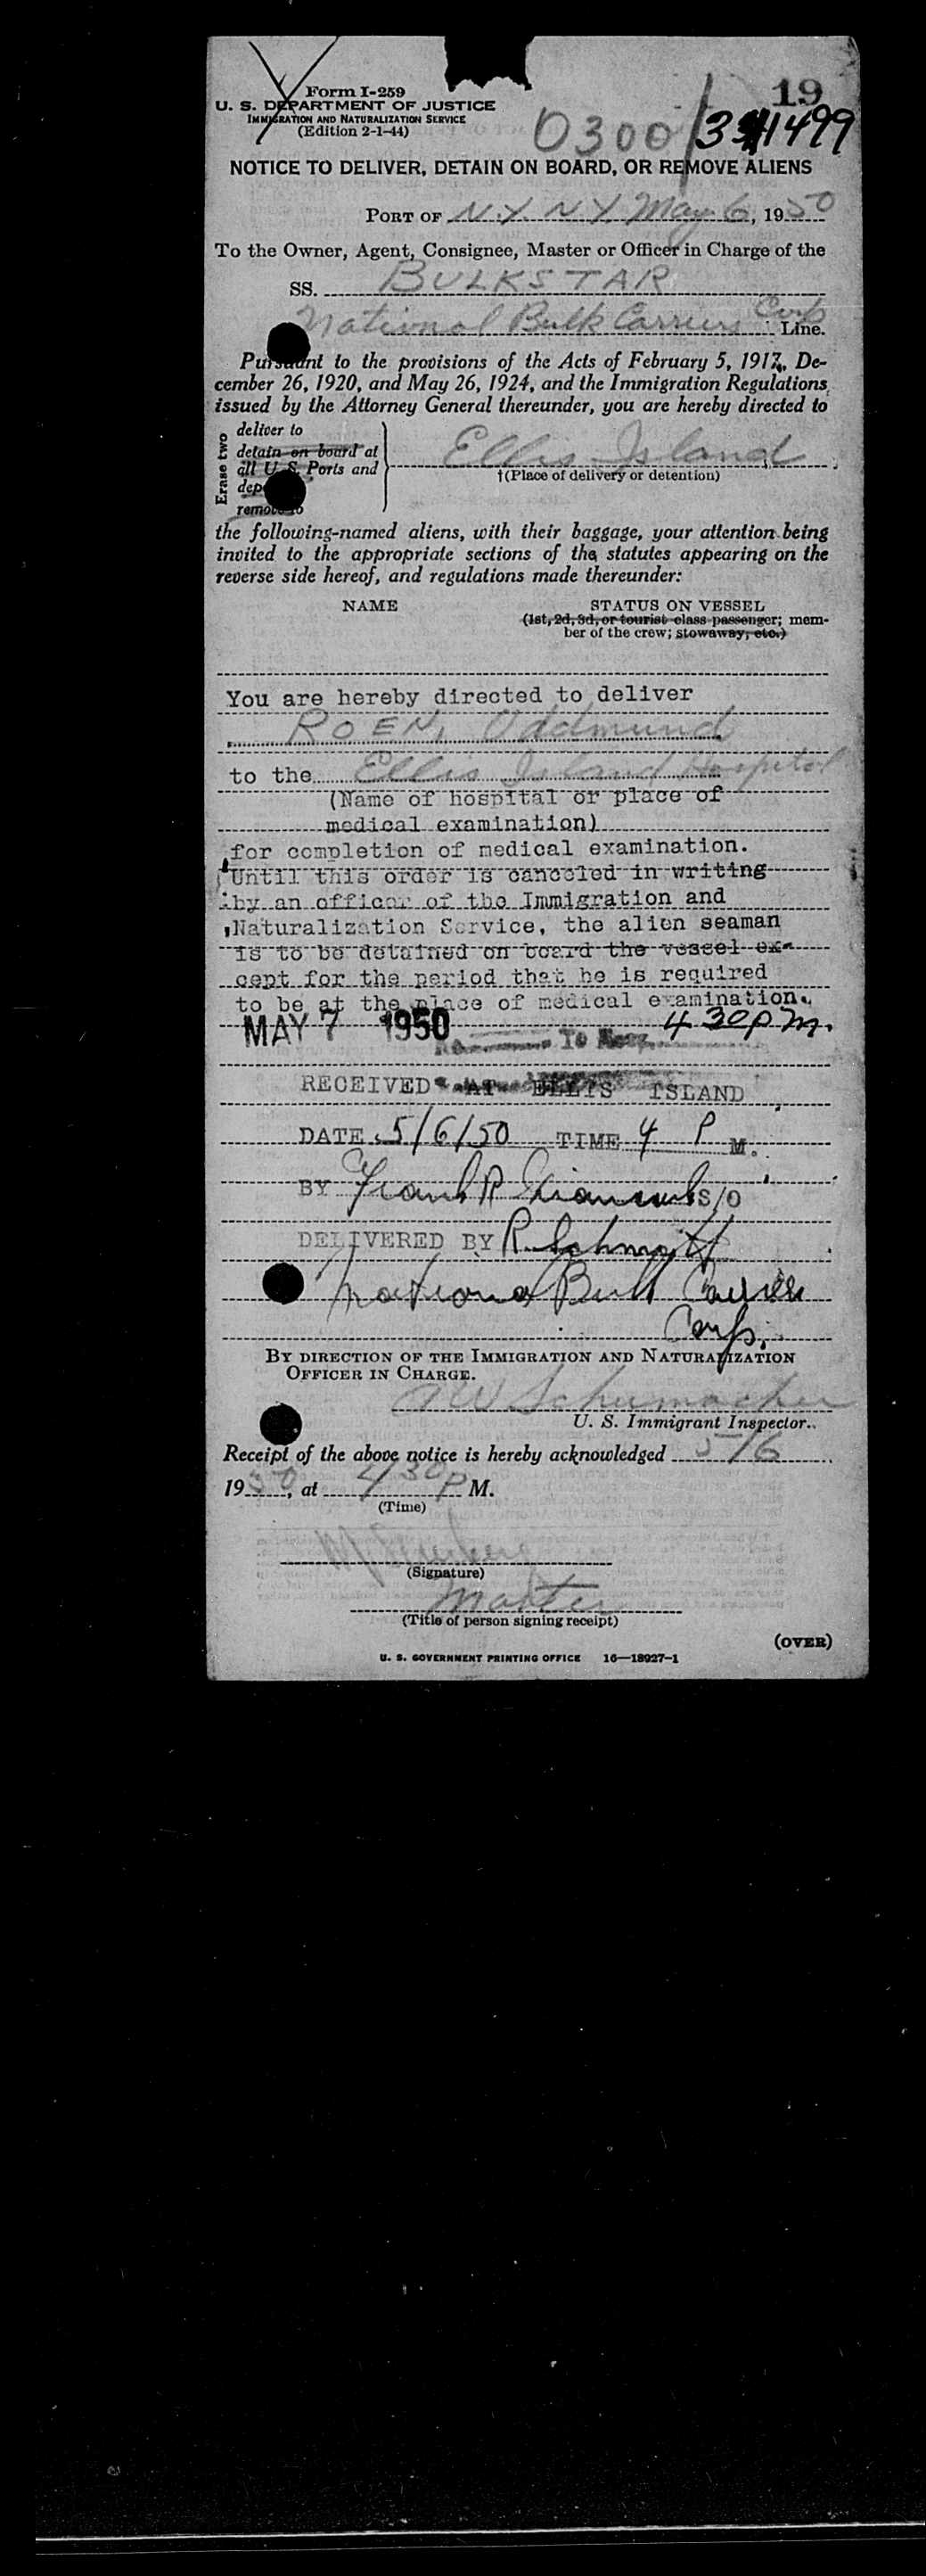 19
Form I-259
U. S. DEPARTMENT OF JUSTICE
IMMIGRATION AND NATURALIZATION SERVICE
(Edition 2-1-44)
0300/ 1499
NOTICE TO DELIVER, DETAIN ON BOARD, OR REMOVE ALIENS
PORT OF N.Y. N.Y. May 6, 1950
To the Owner, Agent, Consignee, Master or Officer in Charge of the
SS. BULKSTAR
National Bulk Carriers Corp Line.
Pursuant to the provisions of the Acts of February 5, 1917, De-
cember 26, 1920, and May 26, 1924, and the Immigration Regulations
issued by the Attorney General thereunder, you are hereby directed to
Erase two
deliver to
detain on board at
all U. S. Ports and
remove to
Ellis Island
†(Place of delivery or detention)
the following-named aliens, with their baggage, your attention being
invited to the appropriate sections of the statutes appearing on the
reverse side hereof, and regulations made thereunder:
NAME STATUS ON VESSEL
(1st, 2d, 3d, or tourist class passenger; mem-
ber of the crew; stowaway, etc.)
You are hereby directed to deliver
ROEN, Oddmund
to the Ellis Island Hospital
(Name of hospital or place of
medical examination)
for completion of medical examination.
Until this order is canceled in writing
by an officer of the Immigration and
Naturalization Service, the alien seaman
is to be detained on board the vessel ex-
cept for the period that he is required
to be at the place of medical examination.
MAY 7 1950 4 30 p m.
RECEIVED AT ELLIS ISLAND
DATE 5/6/50 TIME 4 P M.
BY Frank R S/O
DELIVERED BY R. Schmitt
National Bulk Carriers
Corp.
BY DIRECTION OF THE IMMIGRATION AND NATURALIZATION
OFFICER IN CHARGE.
AW Schumacher
U. S. Immigrant Inspector.
Receipt of the above notice is hereby acknowledged 5/6
1950, at 4 30 P M.
(Time)
(Signature)
Master
(Title of person signing receipt)
(OVER)
U. S. GOVERNMENT PRINTING OFFICE 16—18927-1